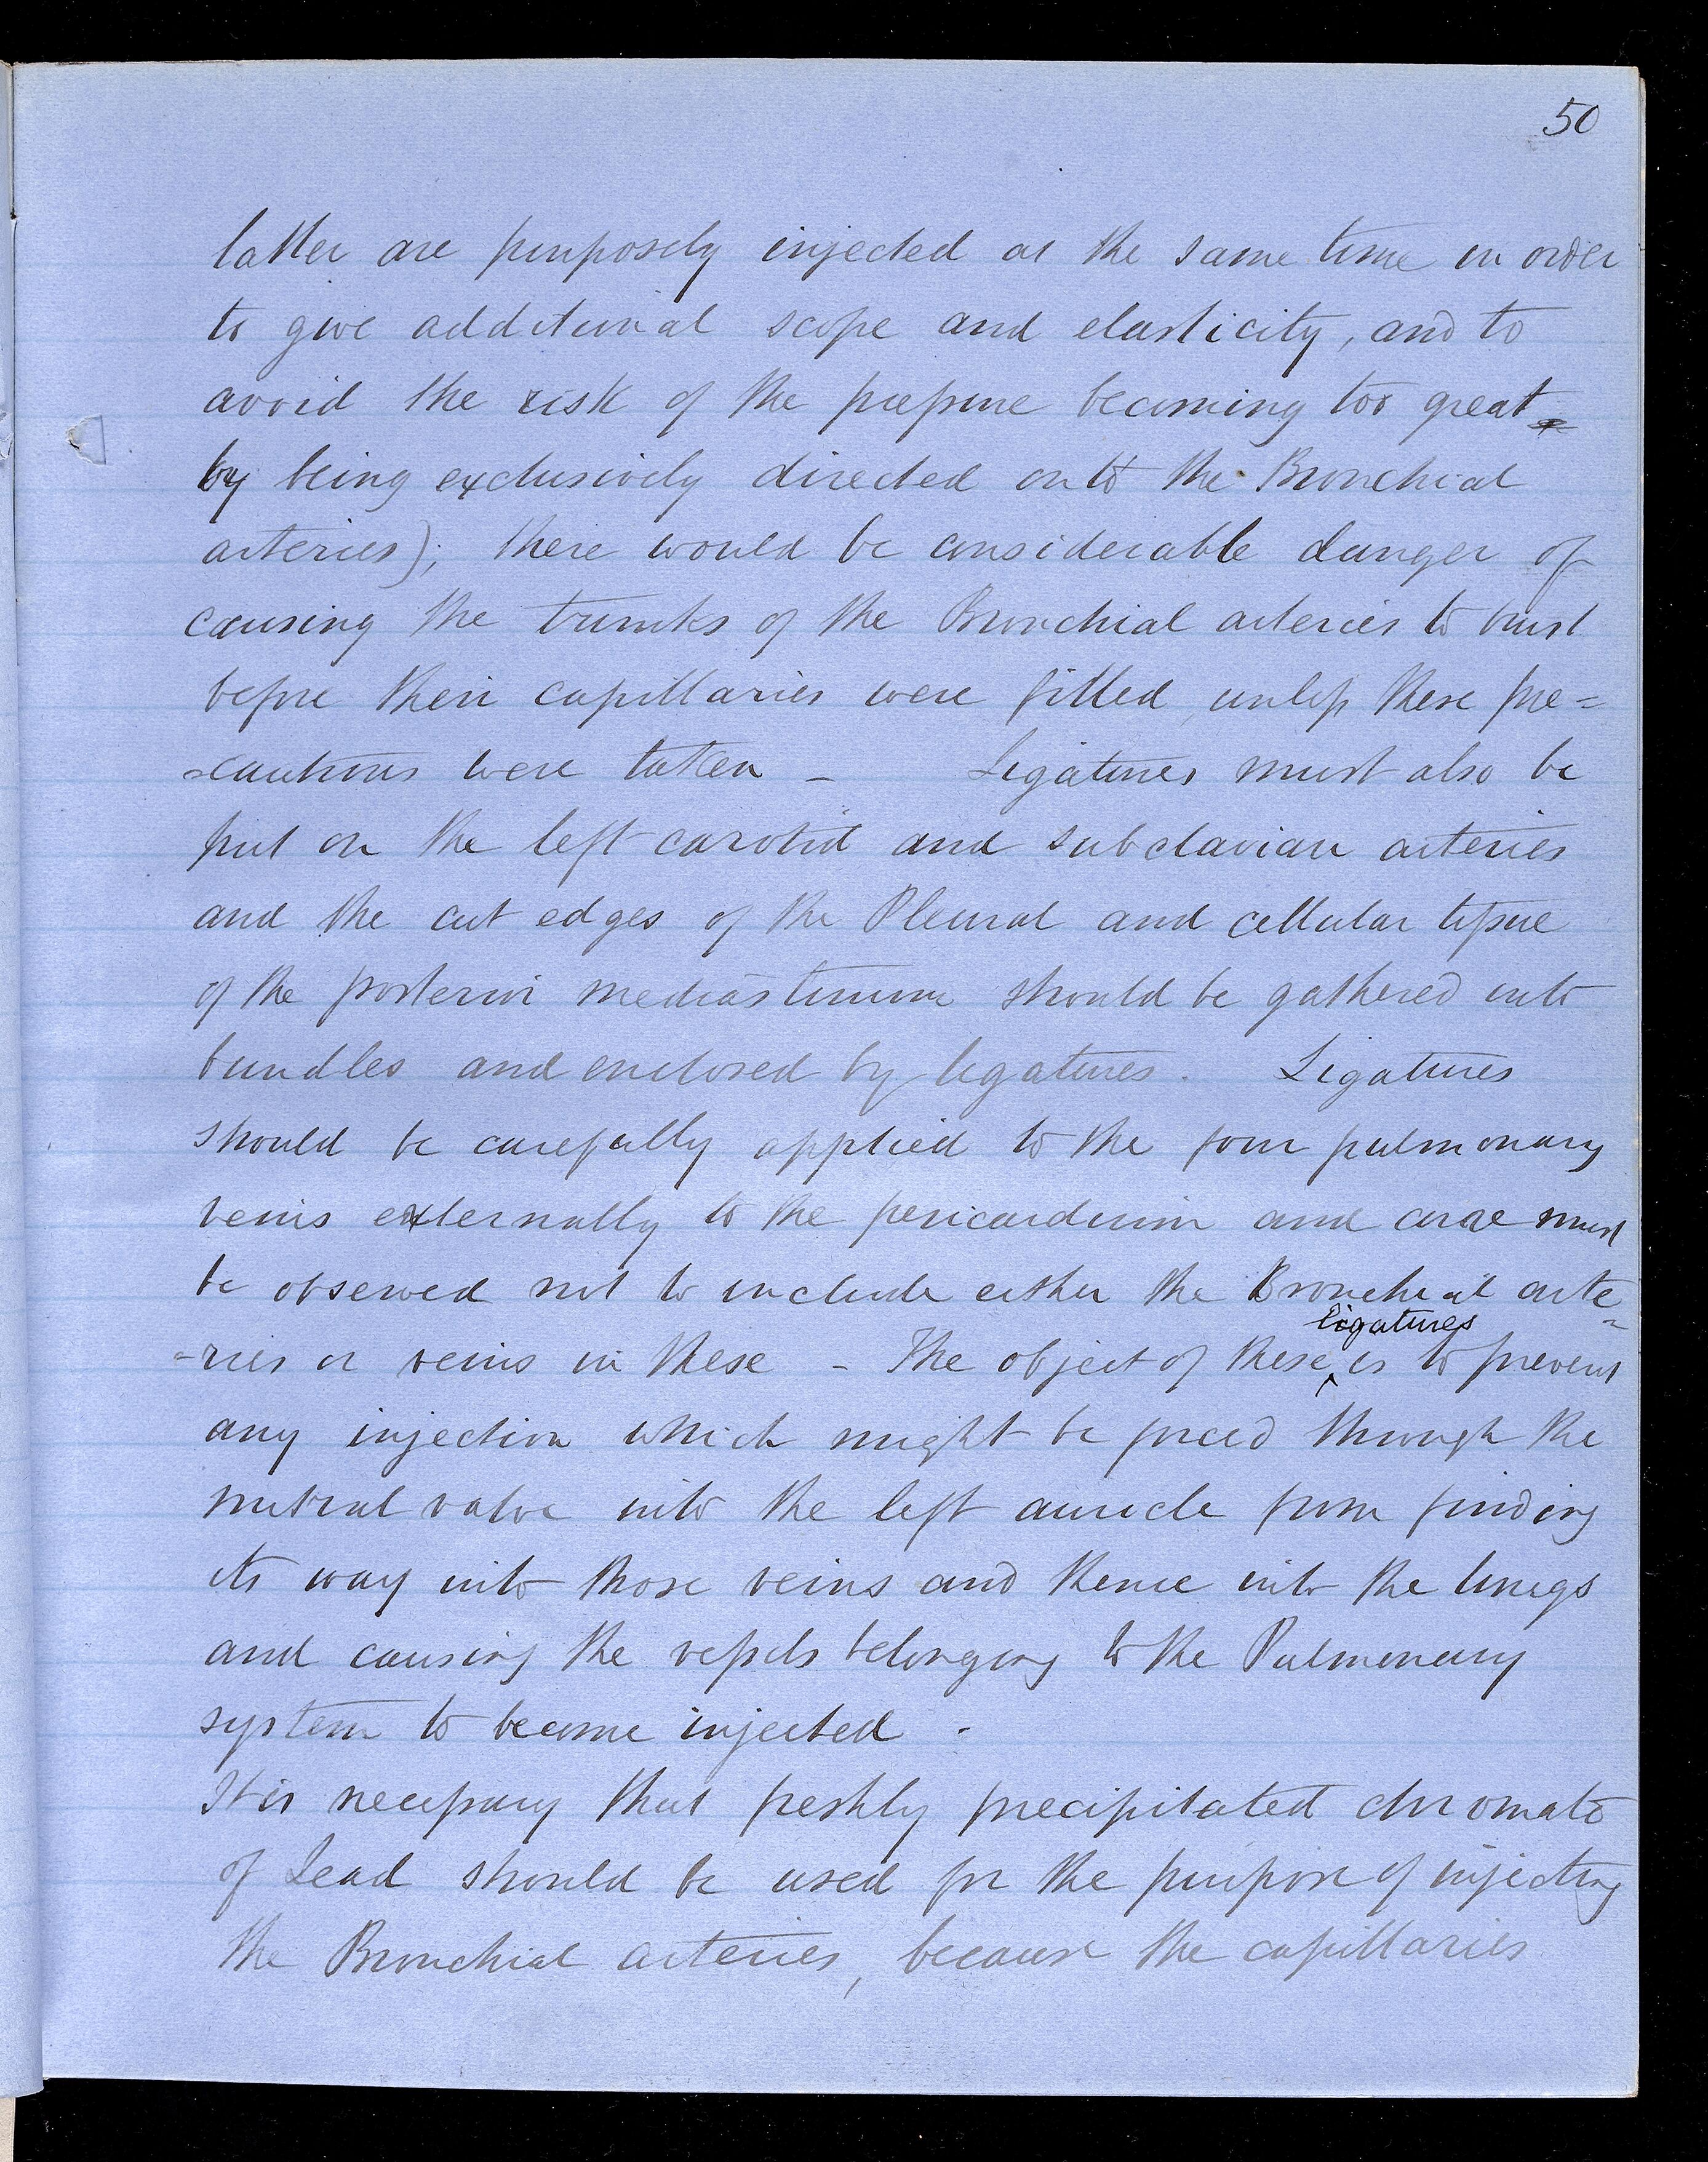 50
latter are purposely injected at the same time in order
to give additional scope and elasticity, and to
avoid the risk of the pressure becoming too great
by being exclusively directed onto the Bronchial
arteries); there would be considerable danger of
causing the trunks of the Bronchial arteries to burst
before their capillaries were filled, unless these pre=
=cautions were taken - Ligatures must also be
put on the left carotid and subclavian arteries
and the cut edges of the Pleural and cellular tissue
of the posterior mediastinum should be gathered into
bundles and enclosed by ligatures. Ligatures
should be carefully applied to the four pulmonary
veins externally to the pericardium and care must
be observed not to include either the Bronchial arte=
=ries or veins in these - The object of these ligatures is to prevent
any injection which might be forced through the
mitral valve into the left auricle from finding
its way into those veins and thence into the lungs
and causing the vessels belonging to the Pulmonary
system to become injected.
It is necessary that freshly precipitated chromate
of Lead should be used for the purpose of injecting
the Bronchial arteries, because the capillaries